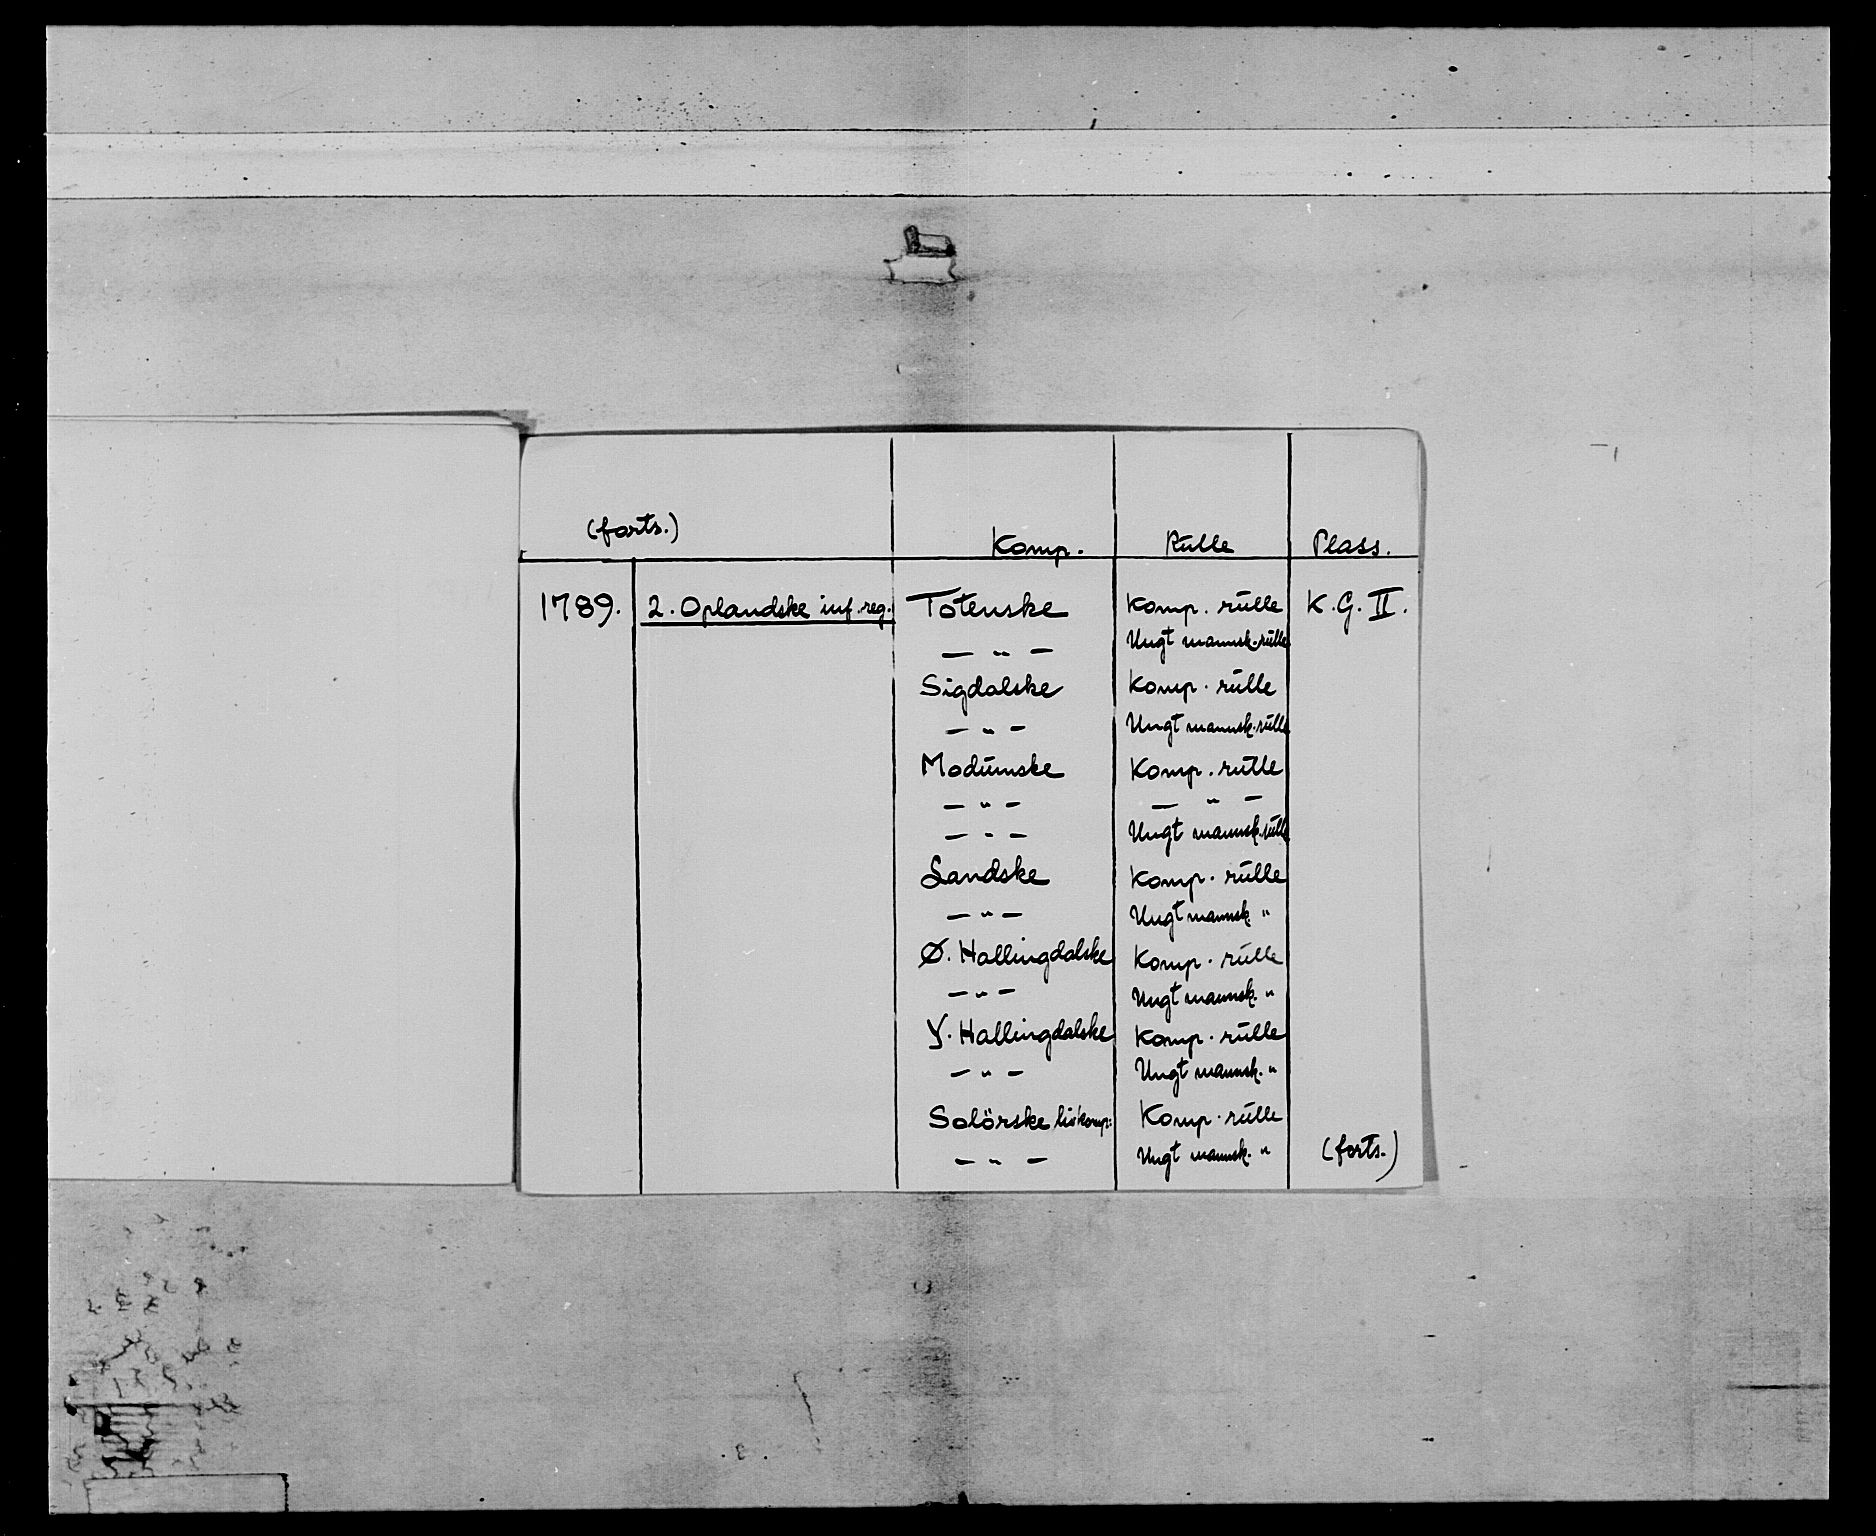 (forts.)
Komp. Rulle Plass.
1789. 2. Oplandske inf. reg. Totenske Komp. rulle K.G. II.
— " — Ungt mannsk. rulle
Sigdalske Komp. rulle
— " — Ungt mannsk. rulle
Modumske Komp. rulle
— " — — " —
— " — Ungt mannsk. rulle
Landske Komp. rulle
— " — Ungt mannsk. "
Ø. Hallingdalske Komp. rulle
— " — Ungt mannsk. "
Y. Hallingdalske Komp. rulle
— " — Ungt mannsk. "
Solörske livkomp: Komp. rulle
— " — Ungt mannsk. " (forts.)